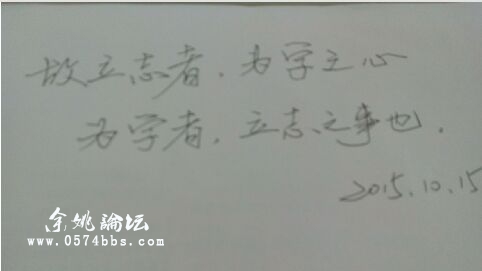 故立志者，为学之心
为学者，立志之事也．
2015.10.15
余姚論坛
www.0574bbs.com